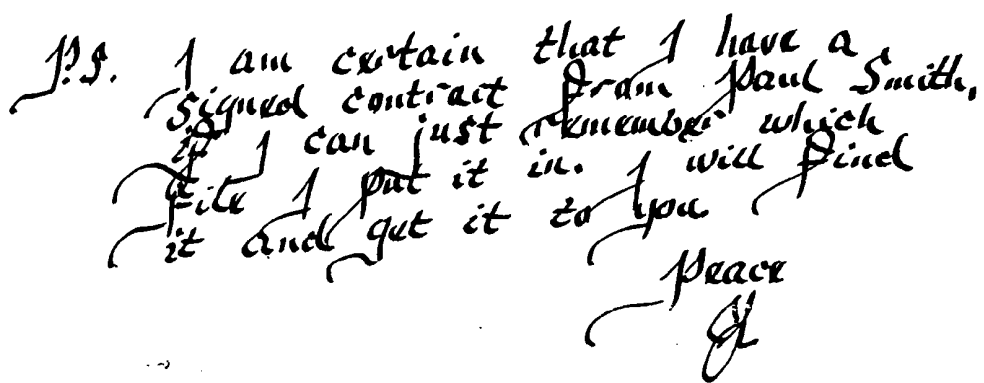 P.S. I am certain that I have a
signed contract from Paul Smith,
if I can just remember which
file I put it in. I will find
it and get it to you
Peace